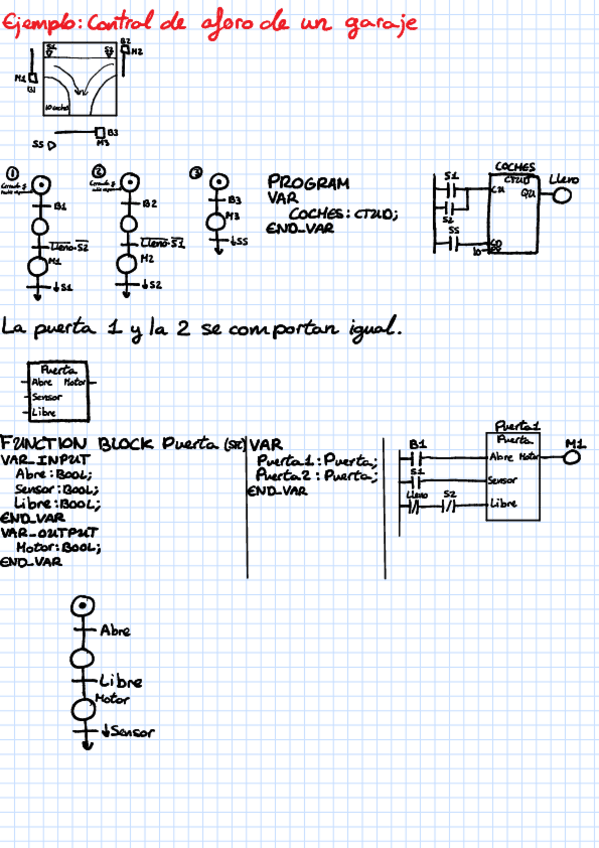 Ejemplo: Control de aforo de un garaje
S1
S2
B2
M2
M1
B1
10 coches
SS
B3
M3
1
2
3
B1
Lleno·S2
M1
↓S1
B2
Lleno·S1
M2
↓S2
B3
M3
↓SS
PROGRAM
VAR
COCHES: CTUD;
END_VAR
COCHES
CTUD
S1
CU
QU
Lleno
S2
SS
CD
10
La puerta 1 y la 2 se comportan igual.
Puerta
Abre Motor
Sensor
Libre
FUNCTION BLOCK Puerta
VAR_INPUT
Abre: BOOL;
Sensor: BOOL;
Libre: BOOL;
END_VAR
VAR_OUTPUT
Motor: BOOL;
END_VAR
VAR
Puerta1: Puerta;
Puerta2: Puerta;
END_VAR
Puerta1
Puerta
B1
Abre Motor
M1
S1
Sensor
Lleno S2
Libre
Abre
Libre
Motor
↓Sensor